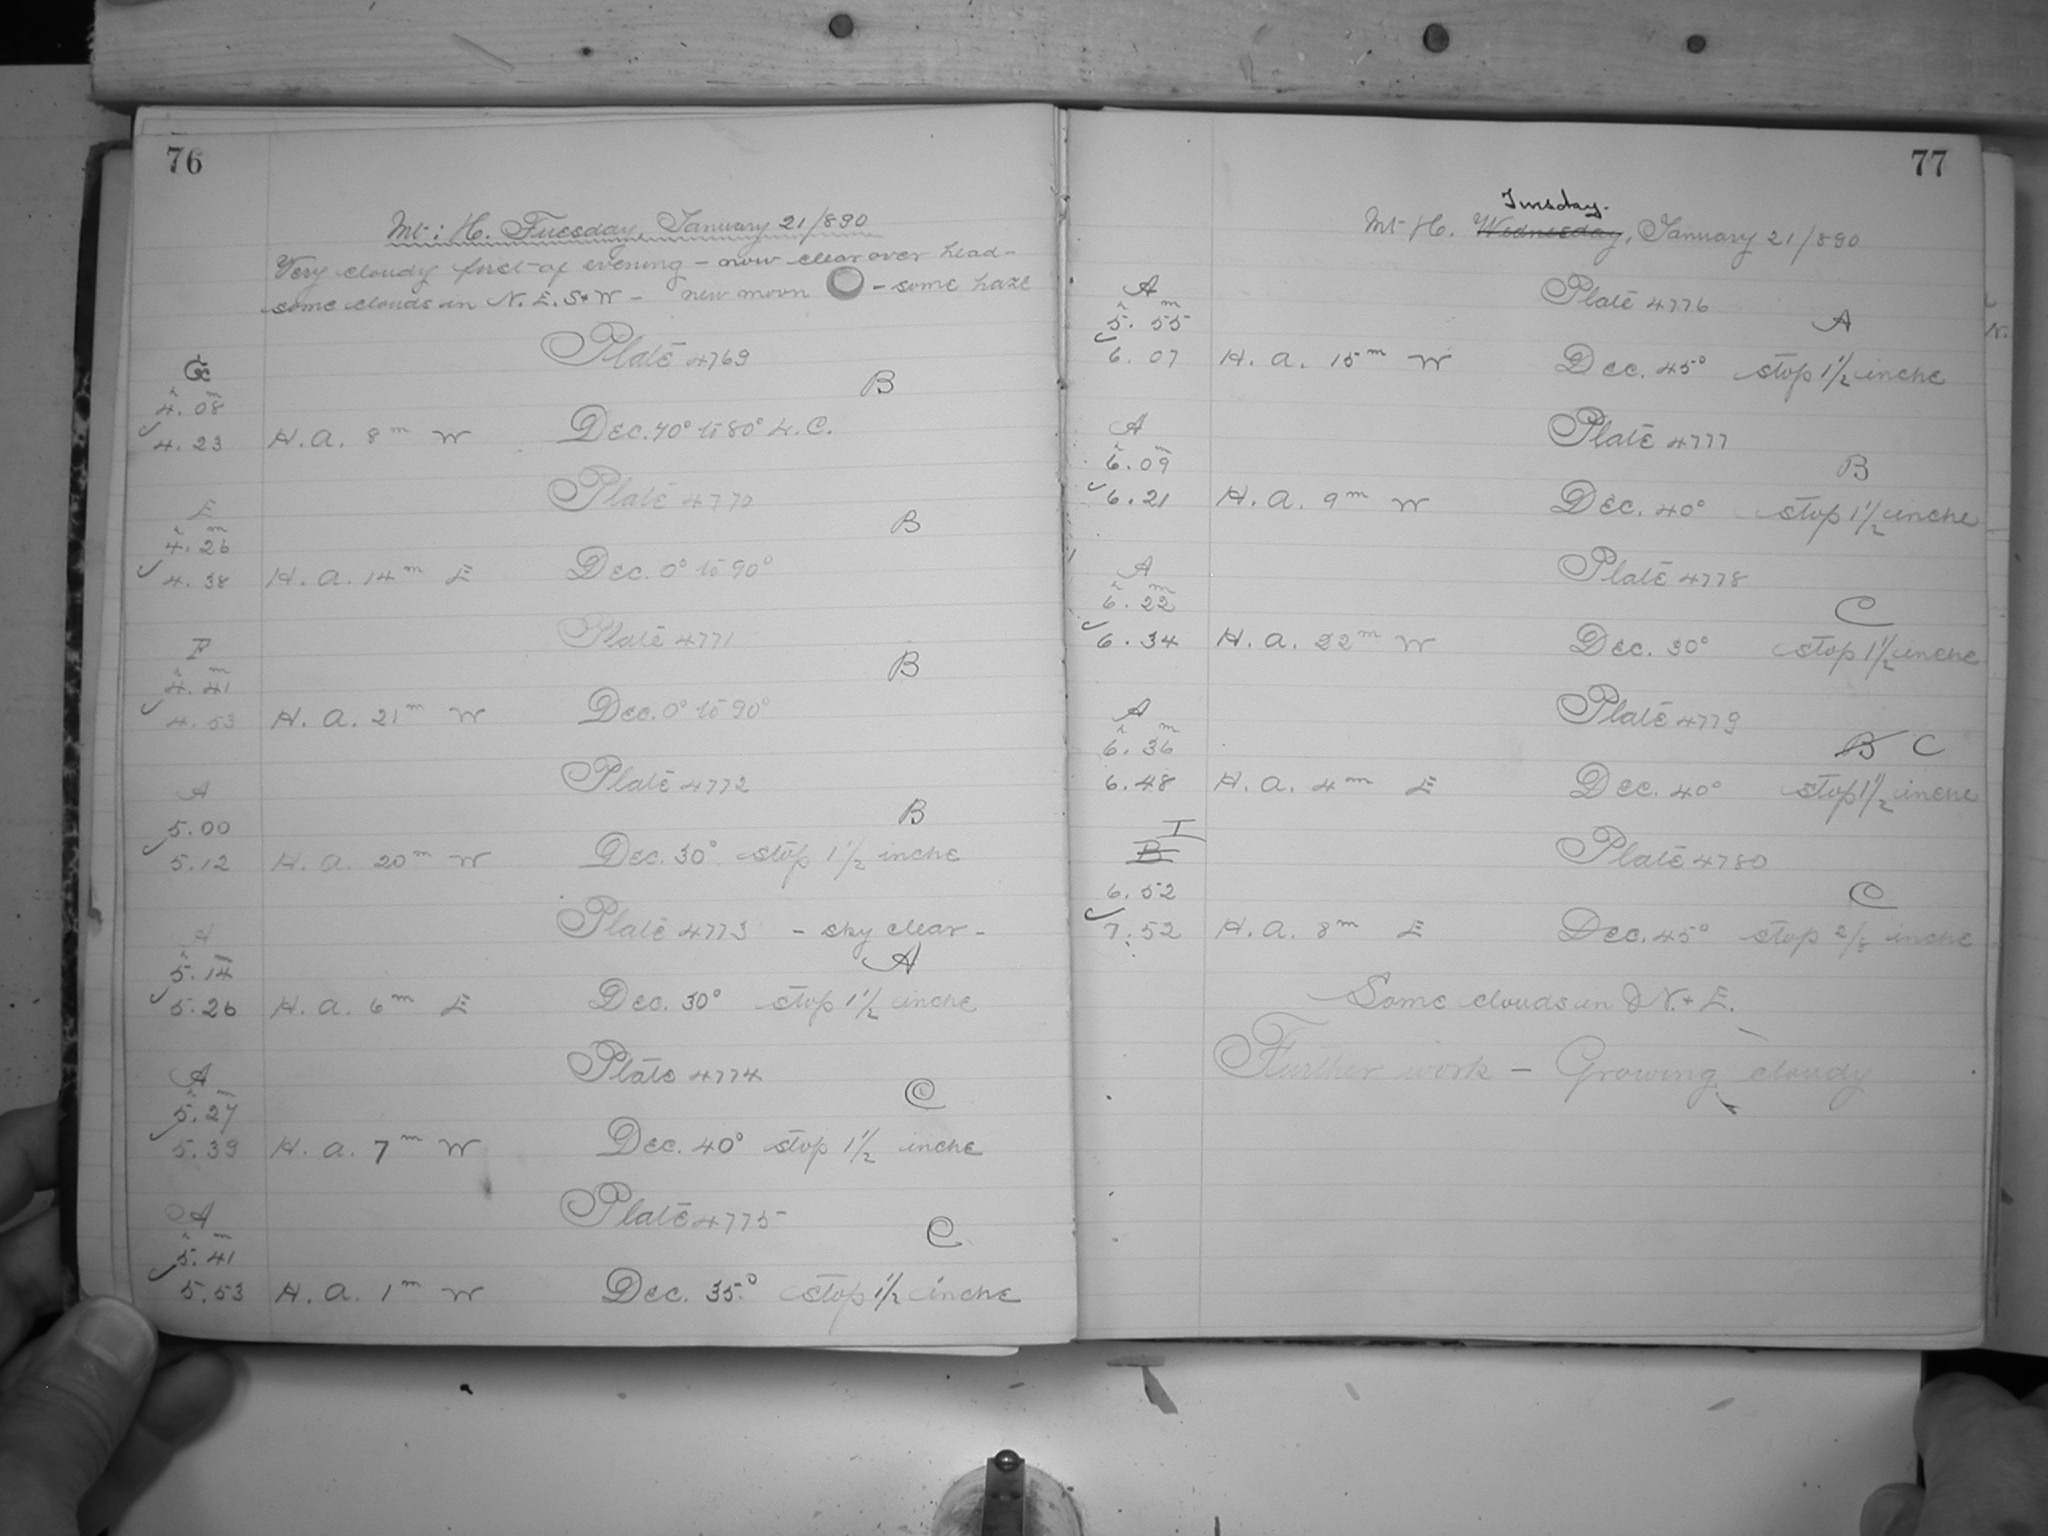 76
Mt: H. Tuesday, January 21/890
Very cloudy first of evening - now clear over head -
some clouds in N. E. S + W - new moon - some haze
Plate 4769
B
4.08
4.23 H. A. 8m W Dec. 70° to 80° L. C.
Plate 4770
E
B
4.26
4.38 H. A. 14m E Dec. 0° to 90°
Plate 4771
F
B
4.41
4.53 H. A. 21m W Dec. 0° to 90°
Plate 4772
A
B
5.00
5.12 H. A. 20m W Dec. 30° stop 1 1/2 inche
Plate 4773 - sky clear -
A
A
5.14
5.26 H. A. 6m E Dec. 30° stop 1 1/2 inche
Plate 4774
A
C
5.27
5.39 H. A. 7m W Dec. 40° stop 1 1/2 inche
Plate 4775
A
C
5.41
5.53 H. A. 1m W Dec. 35° stop 1 1/2 inche
77
Tuesday.
Mt H. Wednesday, January 21/890
A Plate 4776
5. 55 A
6. 07 H. A. 15m W Dec. 45° stop 1 1/2 inche
A Plate 4777
6.09 B
6.21 H. A. 9m W Dec. 40° stop 1 1/2 inche
A Plate 4778
6.22 C
6.34 H. A. 22m W Dec. 30° stop 1 1/2 inche
A Plate 4779
6.36 B C
6.48 H. A. 4m E Dec. 40° stop 1 1/2 inche
I
B Plate 4780
6.52 C
7.52 H. A. 8m E Dec. 45° stop 2/8 inche
Some clouds in N. + E.
Further work - Growing cloudy